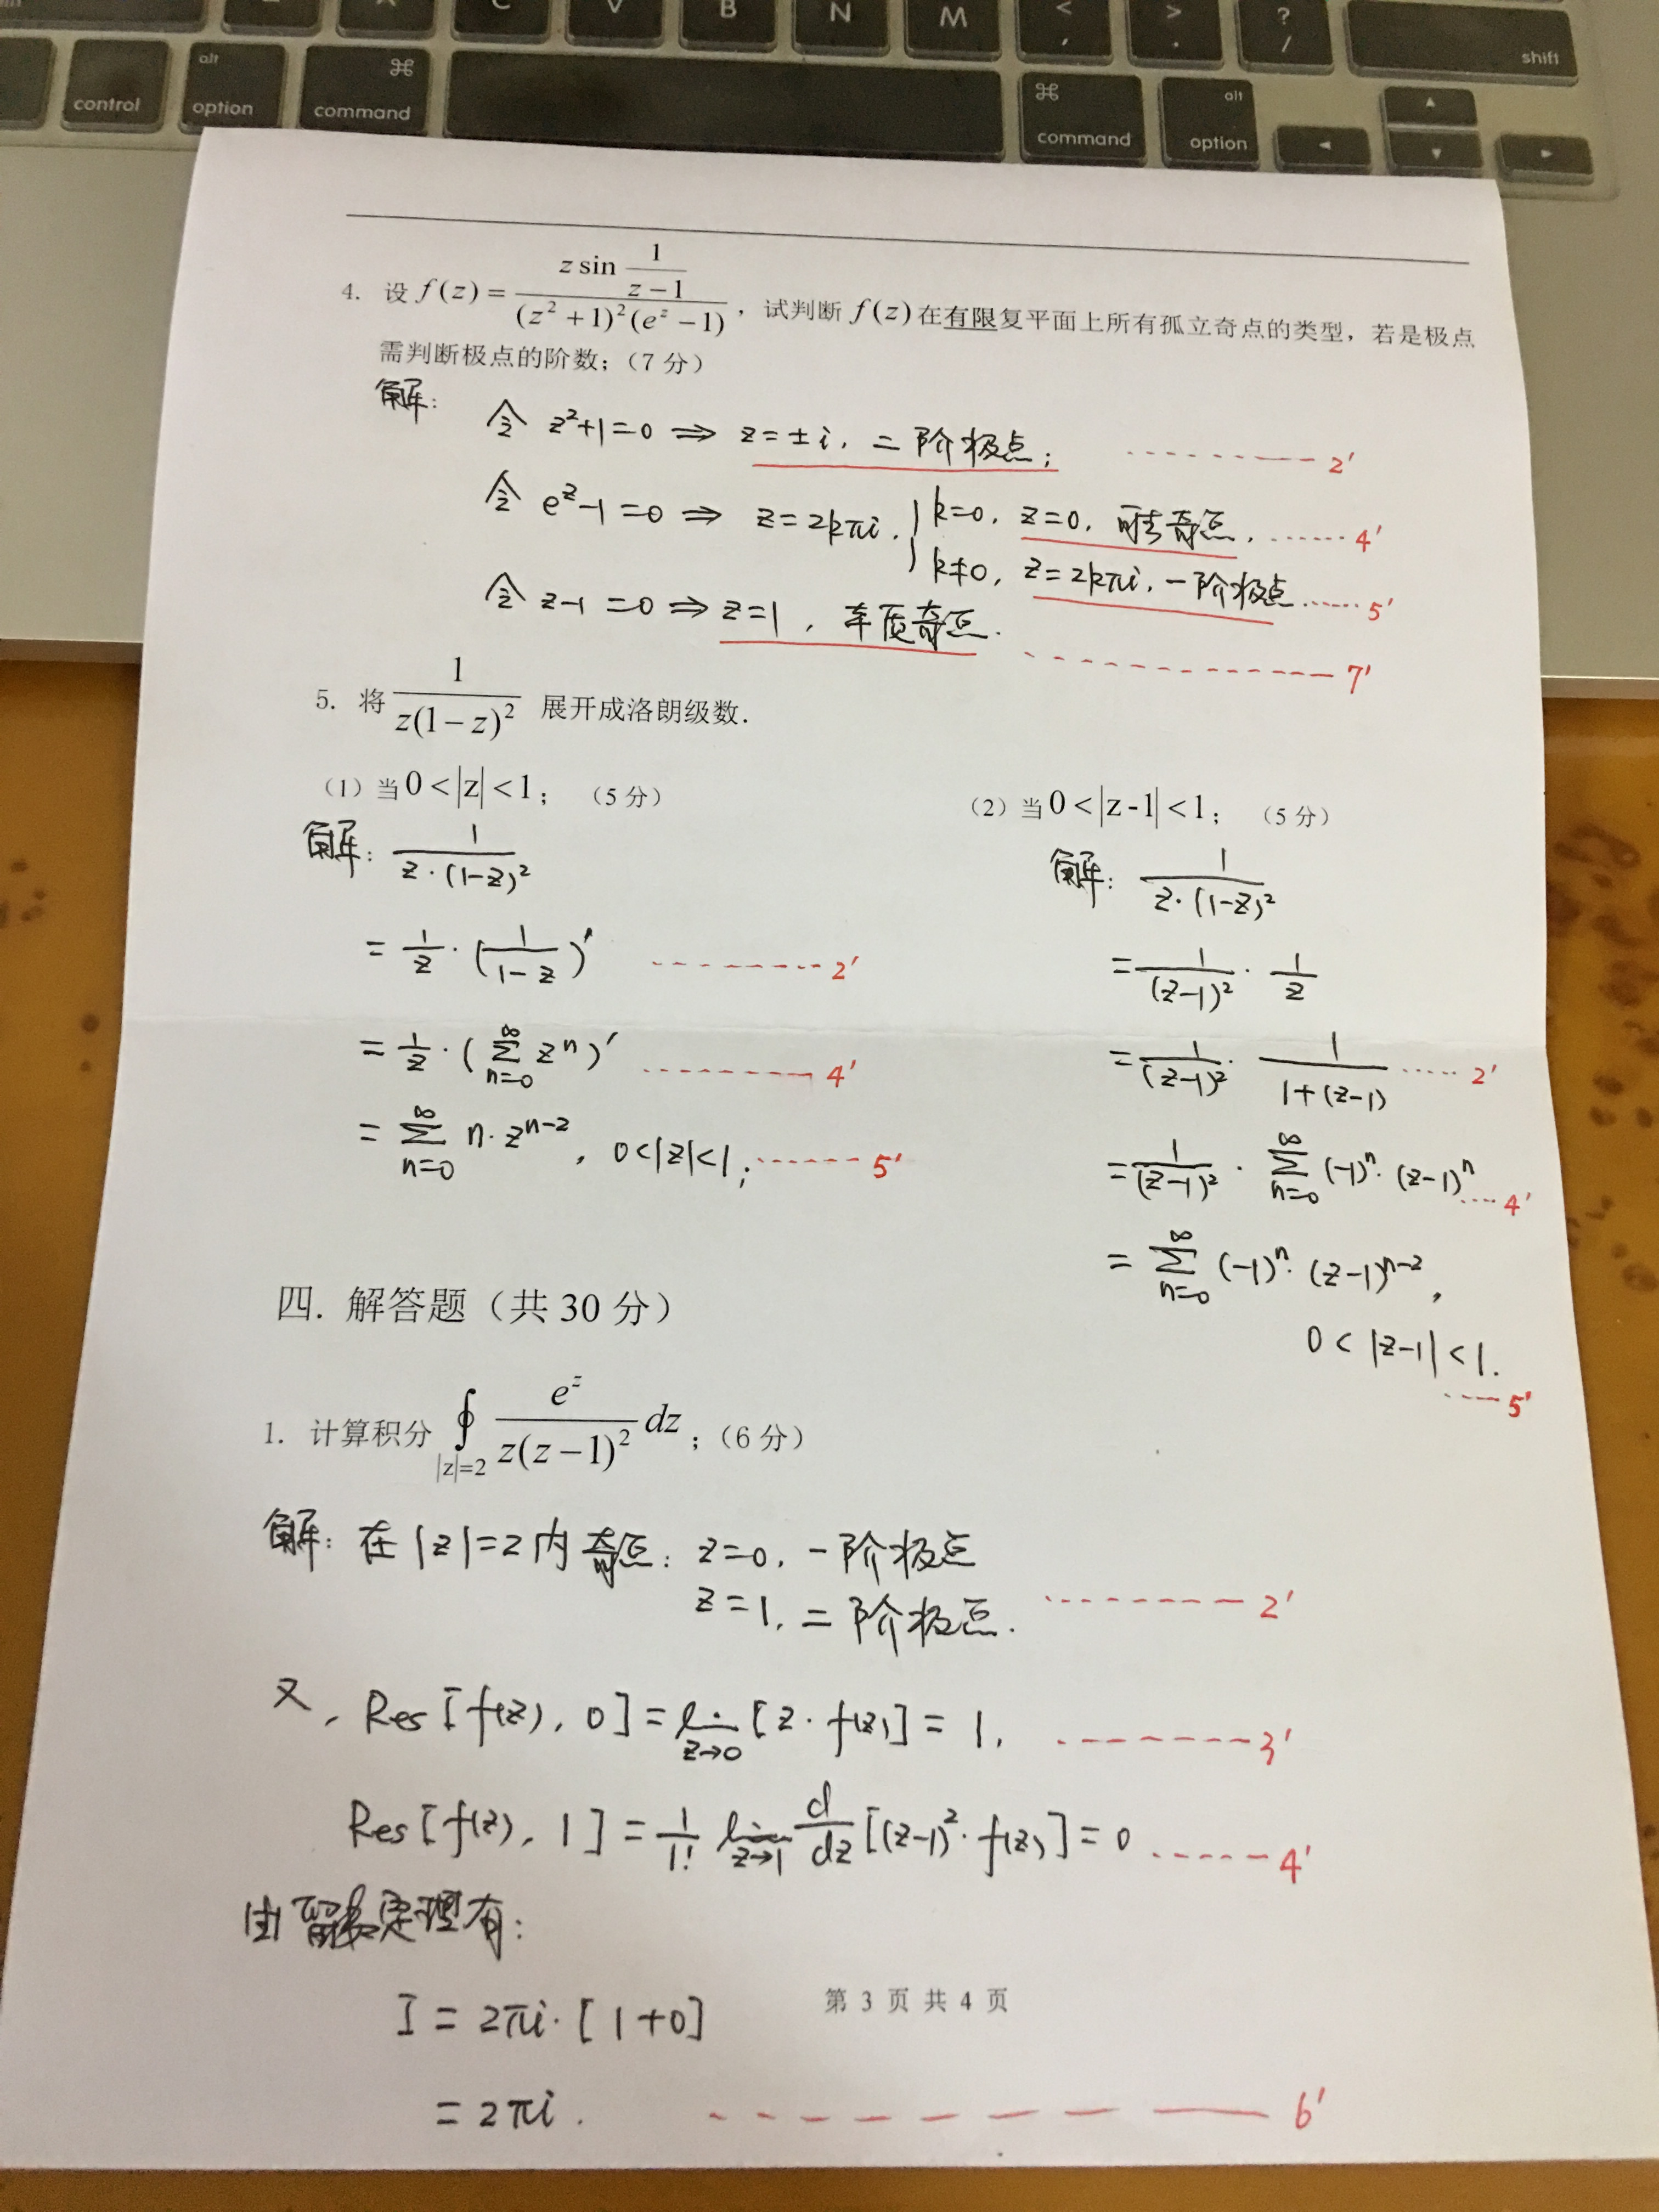 C V B N M < , > . ? / shift
control alt option ⌘ command ⌘ command alt option ◄ ▲ ▼ ►
4. 设 f(z) = \frac{z \sin \frac{1}{z-1}}{(z^2+1)^2(e^z-1)}，试判断 f(z) 在有限复平面上所有孤立奇点的类型，若是极点
需判断极点的阶数；（7 分）
解：
令 z²+1=0 ⇒ z=±i, 二阶极点； --------- 2′
令 e^z-1=0 ⇒ z=2kπi. { k=0, z=0, 可去奇点. ------ 4′
k≠0, z=2kπi, 一阶极点. ----- 5′
令 z-1=0 ⇒ z=1, 本质奇点. --------- 7′
5. 将 \frac{1}{z(1-z)^2} 展开成洛朗级数.
（1）当 0<|z|<1； （5 分）
解: \frac{1}{z·(1-z)^2}
= \frac{1}{z}·(\frac{1}{1-z})′ -------- 2′
= \frac{1}{z}·(\sum_{n=0}^{∞} z^n)′ -------- 4′
= \sum_{n=0}^{∞} n·z^{n-2}, 0<|z|<1; ------ 5′
（2）当 0<|z-1|<1； （5 分）
解: \frac{1}{z·(1-z)^2}
= \frac{1}{(z-1)^2}·\frac{1}{z}
= \frac{1}{(z-1)^2}·\frac{1}{1+(z-1)} ----- 2′
= \frac{1}{(z-1)^2}·\sum_{n=0}^{∞} (-1)^n·(z-1)^n ---- 4′
= \sum_{n=0}^{∞} (-1)^n·(z-1)^{n-2},
0<|z-1|<1.
---- 5′
四. 解答题（共 30 分）
1. 计算积分 \oint_{|z|=2} \frac{e^z}{z(z-1)^2} dz；（6 分）
解: 在|z|=2内奇点: z=0, 一阶极点
z=1, 二阶极点. -------- 2′
又, Res[f(z), 0] = \lim_{z→0} [z·f(z)] = 1, ------- 3′
Res[f(z), 1] = \frac{1}{1!} \lim_{z→1} \frac{d}{dz} [(z-1)^2·f(z)] = 0 ------ 4′
由留数定理有:
I = 2πi·[1+0]
第 3 页 共 4 页
= 2πi. -------- 6′